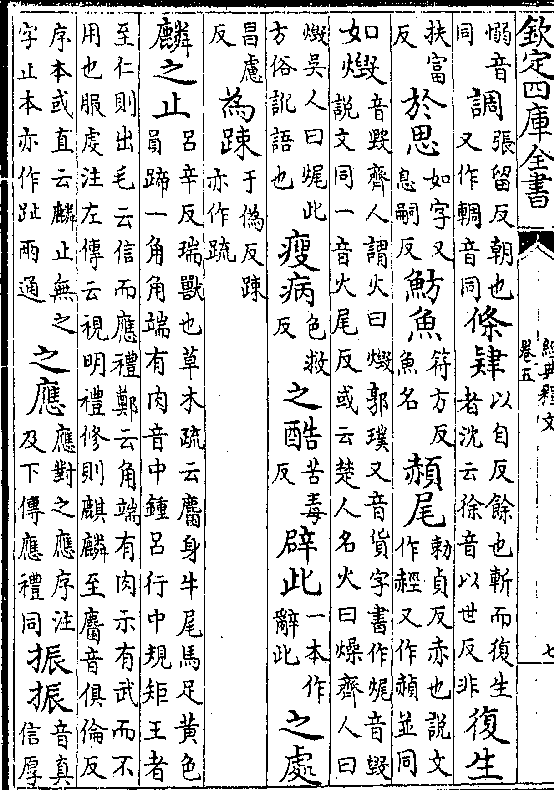 欽定四庫全書
經典釋文
卷五
七
愵音同調張留反朝也又作輖音同條肄以自反餘也斬而復生者沈云徐音以世反非復生
扶富反於思如字又息嗣反魴魚符方反魚名頳尾勅貞反赤也說文作䞓又作頳並同
如燬音毀齊人謂火曰燬郭璞又音貨字書作㷄音毀說文同一音火尾反或云楚人名火曰燥齊人曰
燬吳人曰㷄此方俗訛語也瘦病色救反之酷苦毒反辟此一本作辭此之處
昌慮反為踈于偽反踈亦作疏
麟之止呂辛反瑞獸也草木疏云麕身牛尾馬足黃色員蹄一角角端有肉音中鍾呂行中規矩王者
至仁則出毛云信而應禮鄭云角端有肉示有武而不用也服虔注左傳云視明禮修則麒麟至麕音俱倫反
序本或直云麟止無之字止本亦作趾兩通之應應對之應序注及下傳應禮同振振音真信厚